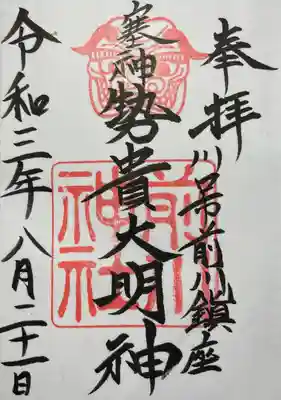 奉拝
川口市前川鎮座
塞神
勢貴大明神
前川
神社
令和三年八月二十一日